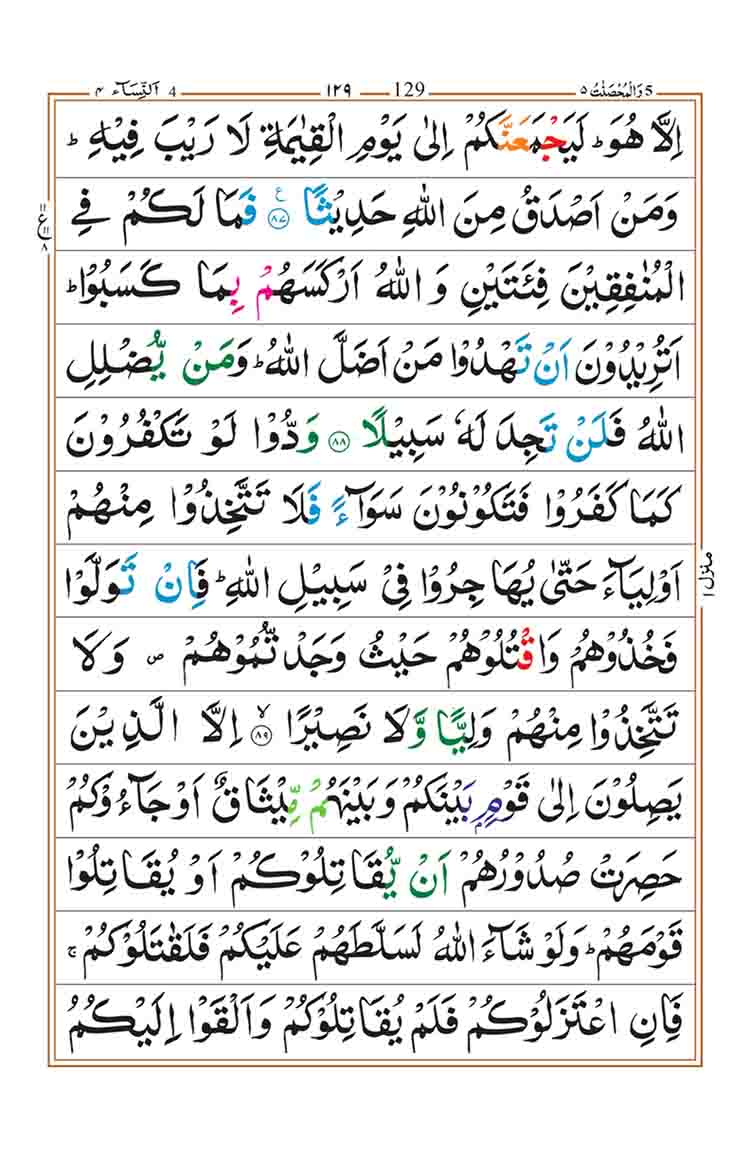 5 وَالْمُحْصَنٰتُ ٥ 129 ١٢٩ 4 اَلنِّسَآء ٤
اِلَّا هُوَ ؕ لَيَجْمَعَنَّكُمْ اِلٰى يَوْمِ الْقِيٰمَةِ لَا رَيْبَ فِيْهِ ؕ
وَمَنْ اَصْدَقُ مِنَ اللّٰهِ حَدِيْثًا ۧ ﴿٨٧﴾ فَمَا لَكُمْ فِي
الْمُنٰفِقِيْنَ فِئَتَيْنِ وَاللّٰهُ اَرْكَسَهُمْ بِمَا كَسَبُوْا ؕ
اَتُرِيْدُوْنَ اَنْ تَهْدُوْا مَنْ اَضَلَّ اللّٰهُ ؕ وَمَنْ يُّضْلِلِ
اللّٰهُ فَلَنْ تَجِدَ لَهٗ سَبِيْلًا ﴿٨٨﴾ وَدُّوْا لَوْ تَكْفُرُوْنَ
كَمَا كَفَرُوْا فَتَكُوْنُوْنَ سَوَآءً فَلَا تَتَّخِذُوْا مِنْهُمْ
اَوْلِيَآءَ حَتّٰى يُهَاجِرُوْا فِيْ سَبِيْلِ اللّٰهِ ؕ فَاِنْ تَوَلَّوْا
فَخُذُوْهُمْ وَاقْتُلُوْهُمْ حَيْثُ وَجَدْتُّمُوْهُمْ ۪ وَلَا
تَتَّخِذُوْا مِنْهُمْ وَلِيًّا وَّلَا نَصِيْرًا ۙ ﴿٨٩﴾ اِلَّا الَّذِيْنَ
يَصِلُوْنَ اِلٰى قَوْمٍۭ بَيْنَكُمْ وَبَيْنَهُمْ مِّيْثَاقٌ اَوْ جَآءُوْكُمْ
حَصِرَتْ صُدُوْرُهُمْ اَنْ يُّقَاتِلُوْكُمْ اَوْ يُقَاتِلُوْا
قَوْمَهُمْ ؕ وَلَوْ شَآءَ اللّٰهُ لَسَلَّطَهُمْ عَلَيْكُمْ فَلَقٰتَلُوْكُمْ ۚ
فَاِنِ اعْتَزَلُوْكُمْ فَلَمْ يُقَاتِلُوْكُمْ وَاَلْقَوْا اِلَيْكُمُ
ع ١١ ٨
منزل ١